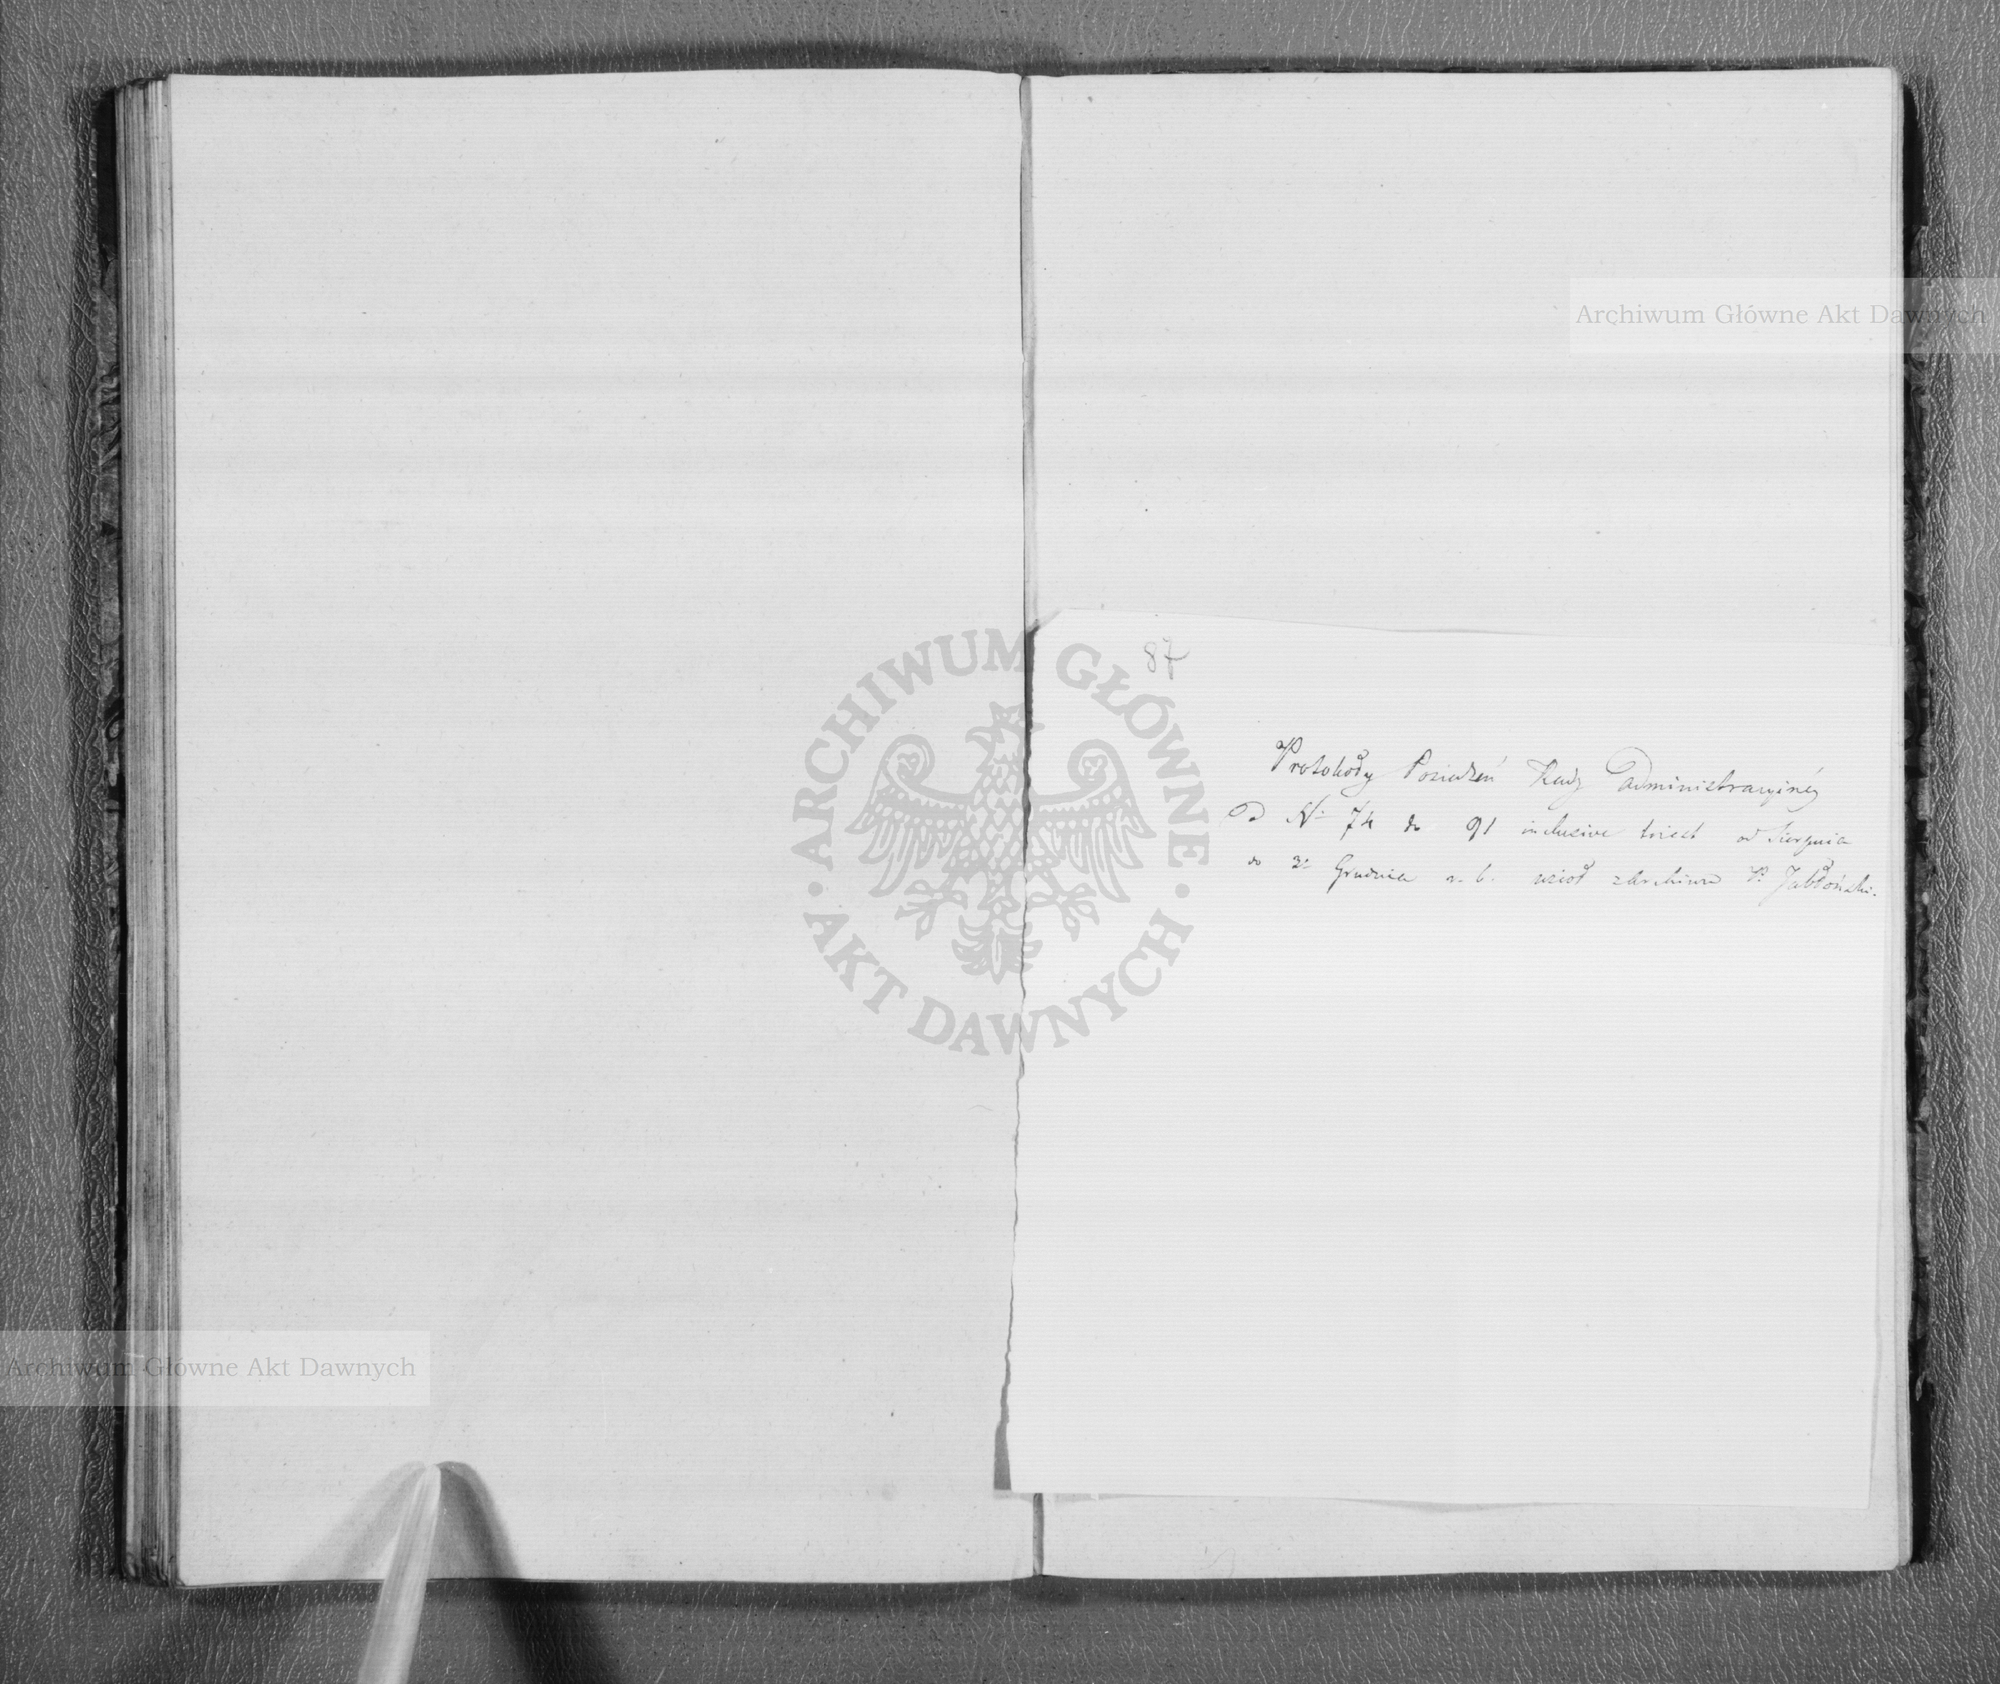 Archiwum Główne Akt Dawnych
87
Protokoły Posiedzeń Rady Administracyinéy
Od Nr 74 do 91 inclusive to iest od Sierpnia
do Grudnia r. b. wziął z Archiwum P. Jabłoński.
ARCHIWUM GŁÓWNE
AKT DAWNYCH
Archiwum Główne Akt Dawnych